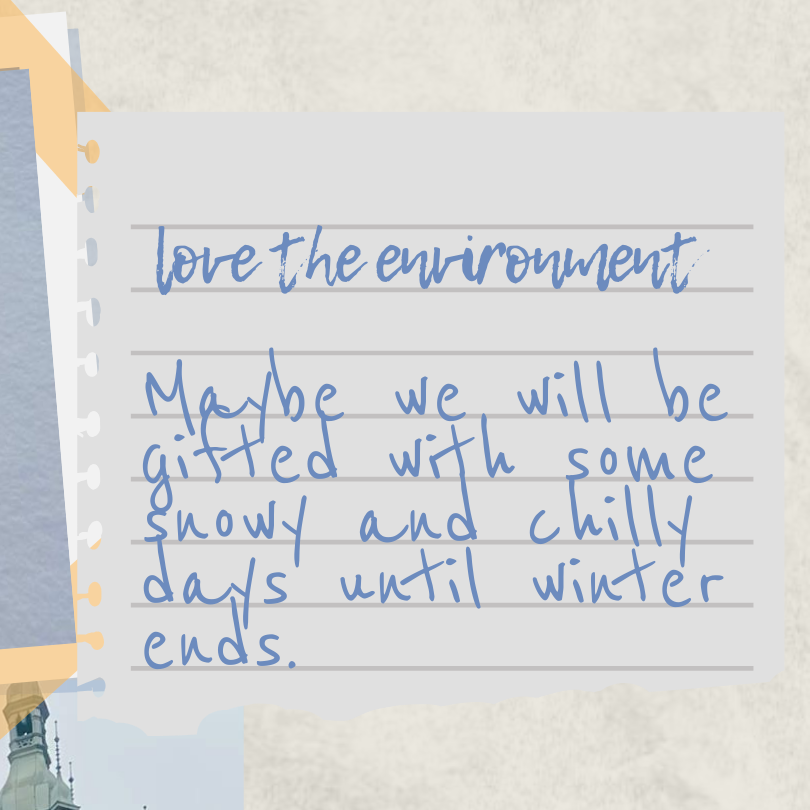 love the environment
Maybe we will be
gifted with some
snowy and chilly
days until winter
ends.